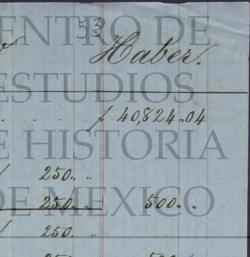 53
Haber.
ENTRO DE
ESTUDIOS
E HISTORIA
DE MEXICO
$ 40,824.04
250. "
250. " 500. "
250. "
250. "